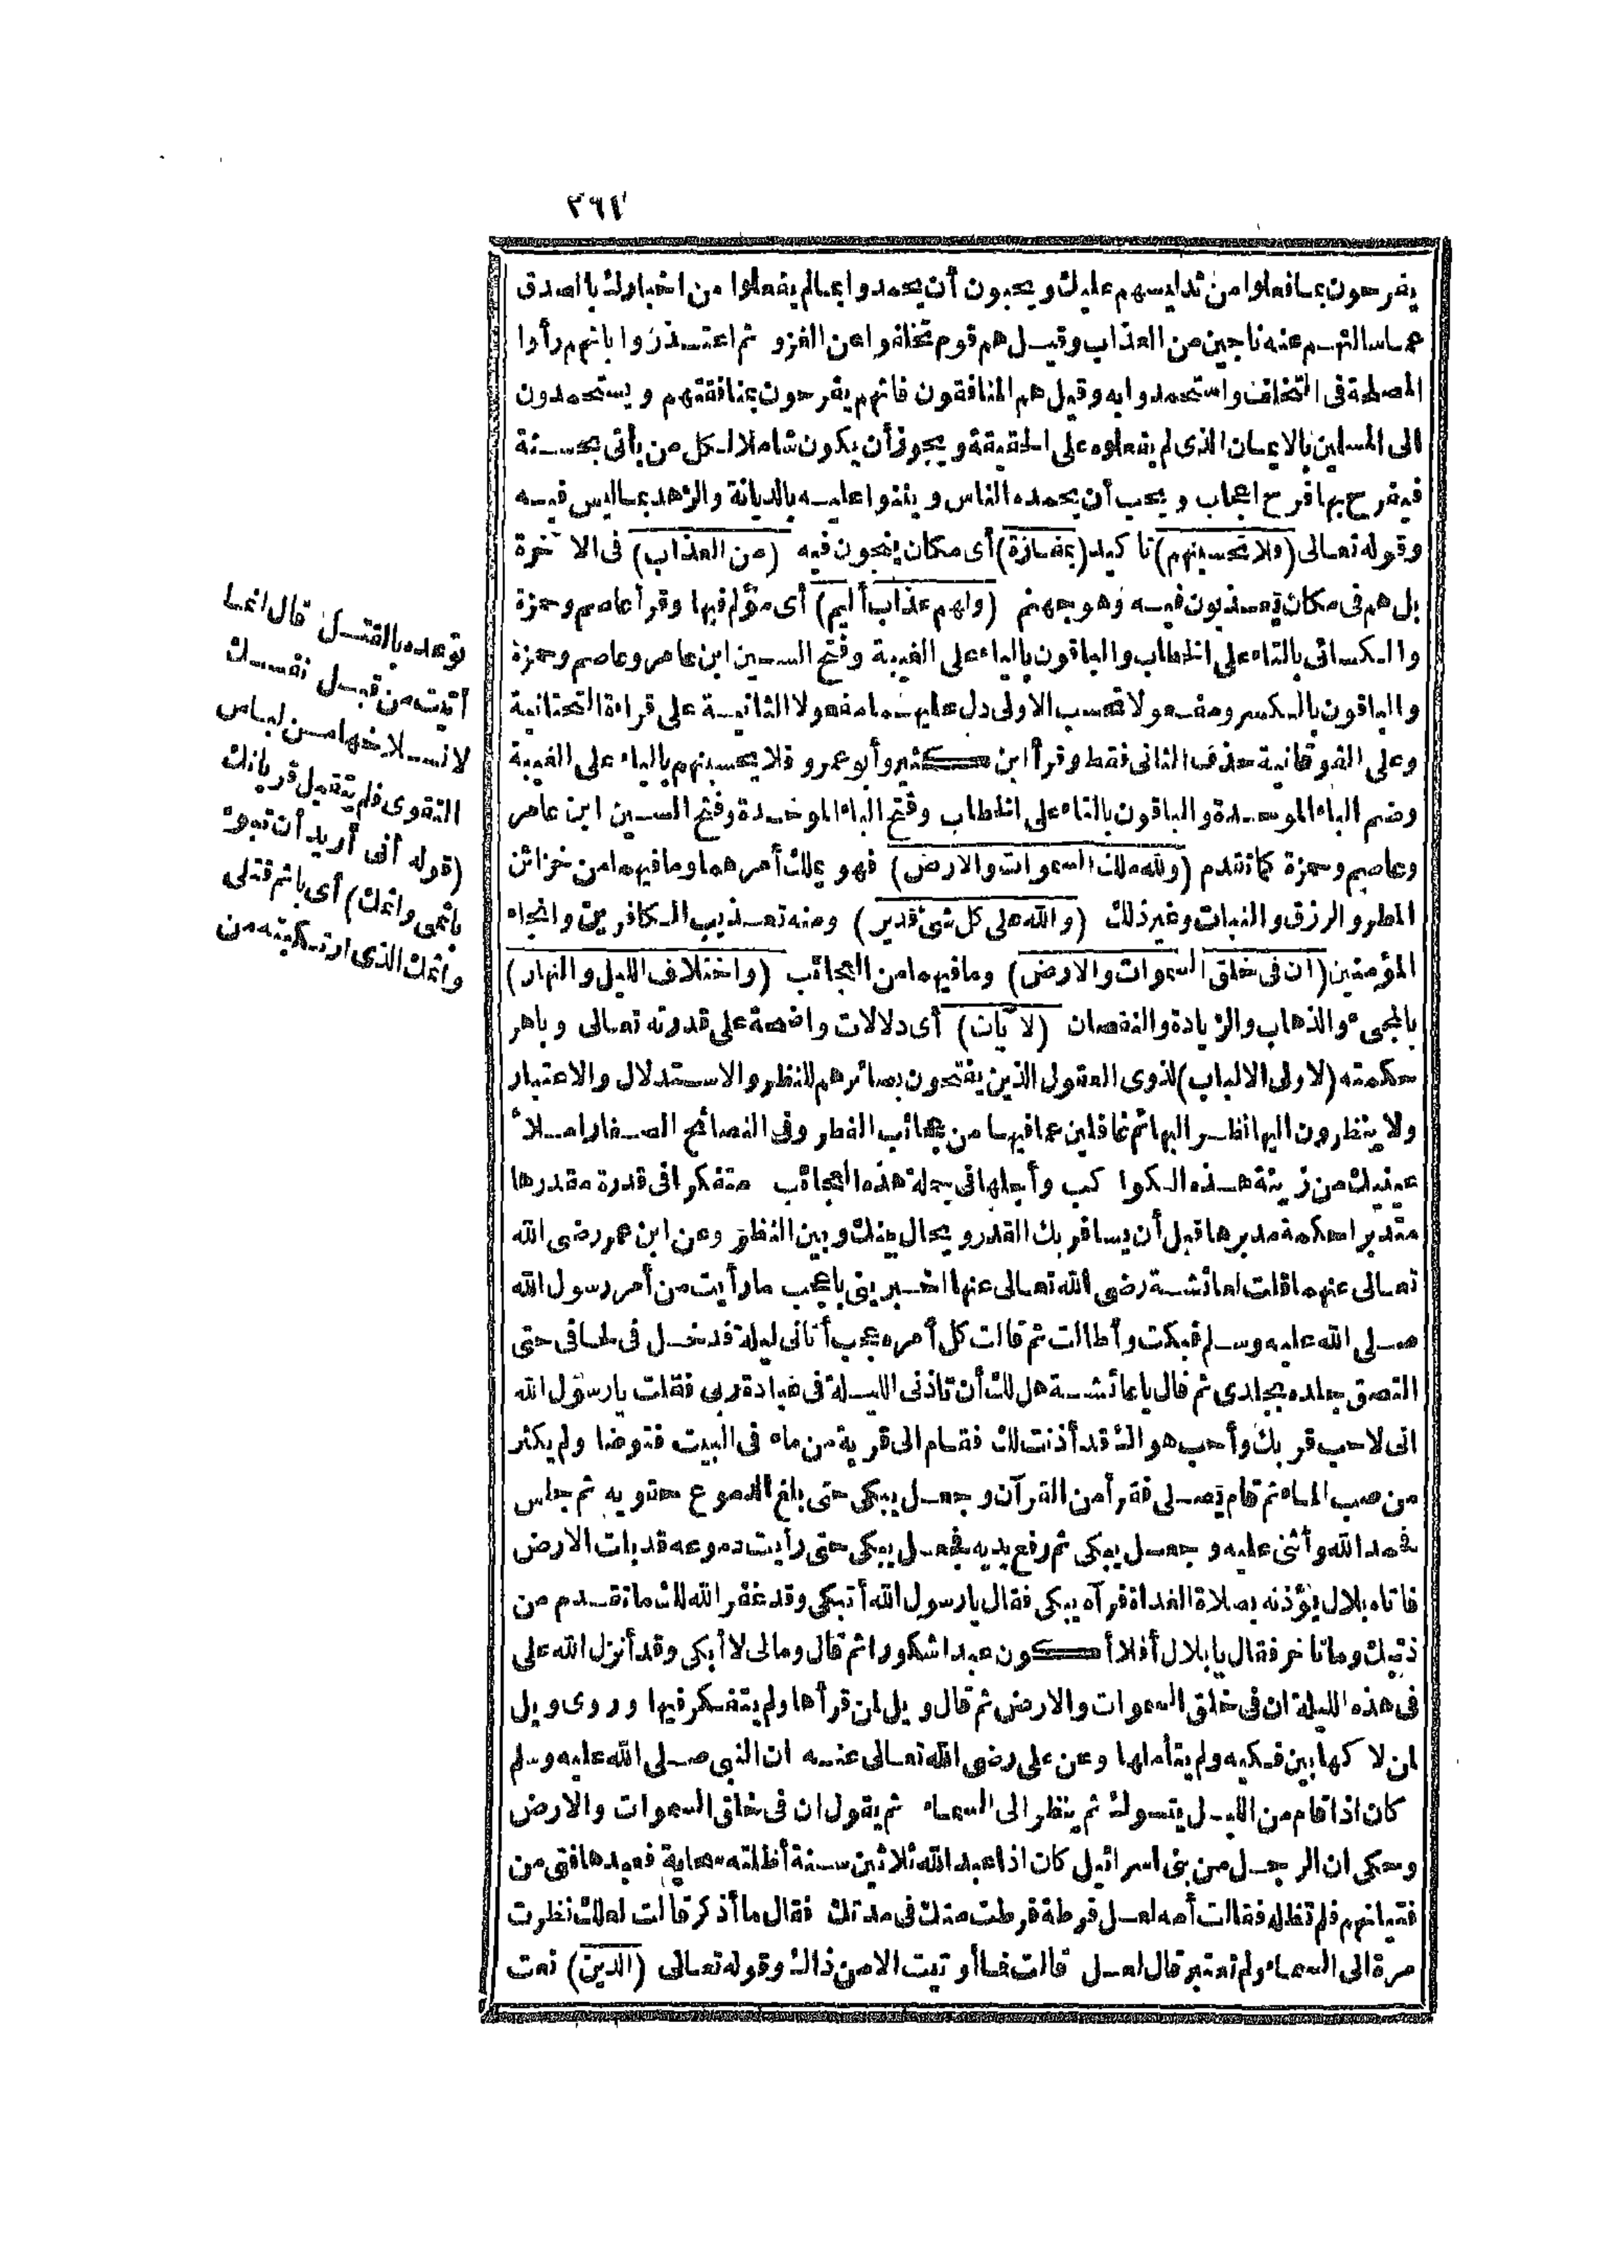 ٢٦٤
يفرحون بما فعلوا من تدليسهم عليك ويحبون أن يحمدوا بما لم يفعلوا من اخبارك بالصدق
عما سألتهم عنه ناجين من العذاب وقيل هم قوم تخلفوا عن الغزو ثم اعتذروا بانهم رأوا
المصلحة فى التخلف واستحمدوا به وقيل هم المنافقون فانهم يفرحون بمنافقتهم ويستحمدون
الى المسلمين بالايمان الذى لم يفعلوه على الحقيقة ويجوز أن يكون شاملا لكل من يأتى بحسنة
فيفرح بها فرح اعجاب ويحب أن يحمده الناس ويثنوا عليه بالديانة والزهد بما ليس فيه
وقوله تعالى (ولا تحسبنهم) تاكيد (بمفازة) أى مكان ينجون فيه (من العذاب) فى الآخرة
بل هم فى مكان يعذبون فيه وهو جهنم (ولهم عذاب أليم) أى مؤلم فيها وقرأ عاصم وحمزة
والكسائى بالتاء على الخطاب والباقون بالياء على الغيبة وفتح السين ابن عامر وعاصم وحمزة
والباقون بالكسر ومفعولا تحسب الاولى دل عليهما مفعولا الثانية على قراءة التحتانية
وعلى الفوقانية حذف الثانى فقط وقرأ ابن كثير وأبو عمرو فلا يحسبنهم بالياء على الغيبة
وضم الباء الموحدة والباقون بالتاء على الخطاب وفتح الباء الموحدة وفتح السين ابن عامر
وعاصم وحمزة كما تقدم (ولله ملك السموات والارض) فهو يملك أمرهما وما فيهما من خزائن
المطر والرزق والنبات وغير ذلك (والله على كل شئ قدير) ومنه تعذيب الكافرين وانجاء
المؤمنين (ان فى خلق السموات والارض) وما فيهما من العجائب (واختلاف الليل والنهار)
بالمجىء والذهاب والزيادة والنقصان (لآيات) أى دلالات واضحة على قدرته تعالى وباهر
حكمته (لاولى الالباب) لذوى العقول الذين يفتحون بصائرهم للنظر والاستدلال والاعتبار
ولا ينظرون اليها نظر البهائم غافلين عما فيها من عجائب الفطر وفى النصائح الصغار املأ
عينيك من زينة هذه الكواكب وأجلها فى جملة هذه العجائب متفكرا فى قدرة مقدرها
متدبرا حكمة مدبرها قبل أن يسافر بك القدر ويحال بينك وبين النظر وعن ابن عمر رضى الله
تعالى عنهما قلت لعائشة رضى الله تعالى عنها اخبرينى باعجب ما رأيت من أمر رسول الله
صلى الله عليه وسلم فبكت وأطالت ثم قالت كل أمره عجب أتانى ليلة فدخل فى لحافى حتى
التصق جلده بجلدى ثم قال يا عائشة هل لك أن تاذنى الليلة فى عبادة ربى فقلت يا رسول الله
انى لاحب قربك وأحب هواك قد أذنت لك فقام الى قربة من ماء فى البيت فتوضا ولم يكثر
من صب الماء ثم قام يصلى فقرأ من القرآن وجعل يبكى حتى بلغ الدموع حقويه ثم جلس
فحمد الله وأثنى عليه وجعل يبكى ثم رفع يديه فجعل يبكى حتى رأيت دموعه قد بلت الارض
فاتاه بلال يؤذنه بصلاة الغداة فرآه يبكى فقال يا رسول الله أتبكى وقد غفر الله لك ما تقدم من
ذنبك وما تاخر فقال يا بلال أفلا أكون عبدا شكورا ثم قال ومالى لا أبكى وقد أنزل الله على
فى هذه الليلة ان فى خلق السموات والارض ثم قال ويل لمن قرأها ولم يتفكر فيها وروى ويل
لمن لاكها بين فكيه ولم يتأملها وعن على رضى الله تعالى عنه ان النبى صلى الله عليه وسلم
كان اذا قام من الليل يتسوك ثم ينظر الى السماء ثم يقول ان فى خلق السموات والارض
وحكى ان الرجل من بنى اسرائيل كان اذا عبد الله ثلاثين سنة أظلته سحابة فعبدها فتى من
فتيانهم فلم تظله فقالت أمه لعل فرطة فرطت منك فى مدتك فقال ما أذكر قالت لعلك نظرت
مرة الى السماء ولم تعتبر قال لعل قالت فما أوتيت الا من ذاك وقوله تعالى (الذين) نعت
توعده بالقتل قال انما
أتيت من قبل نفسك
لانسلاخها من لباس
التقوى فلم يتقبل قربانك
(قوله أنى أريد أن تبوء
باثمى واثمك) أى باثم قتلى
واثمك الذى ارتكبته من